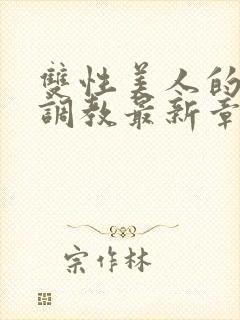 雙性美人的
調教最新章
宗作林